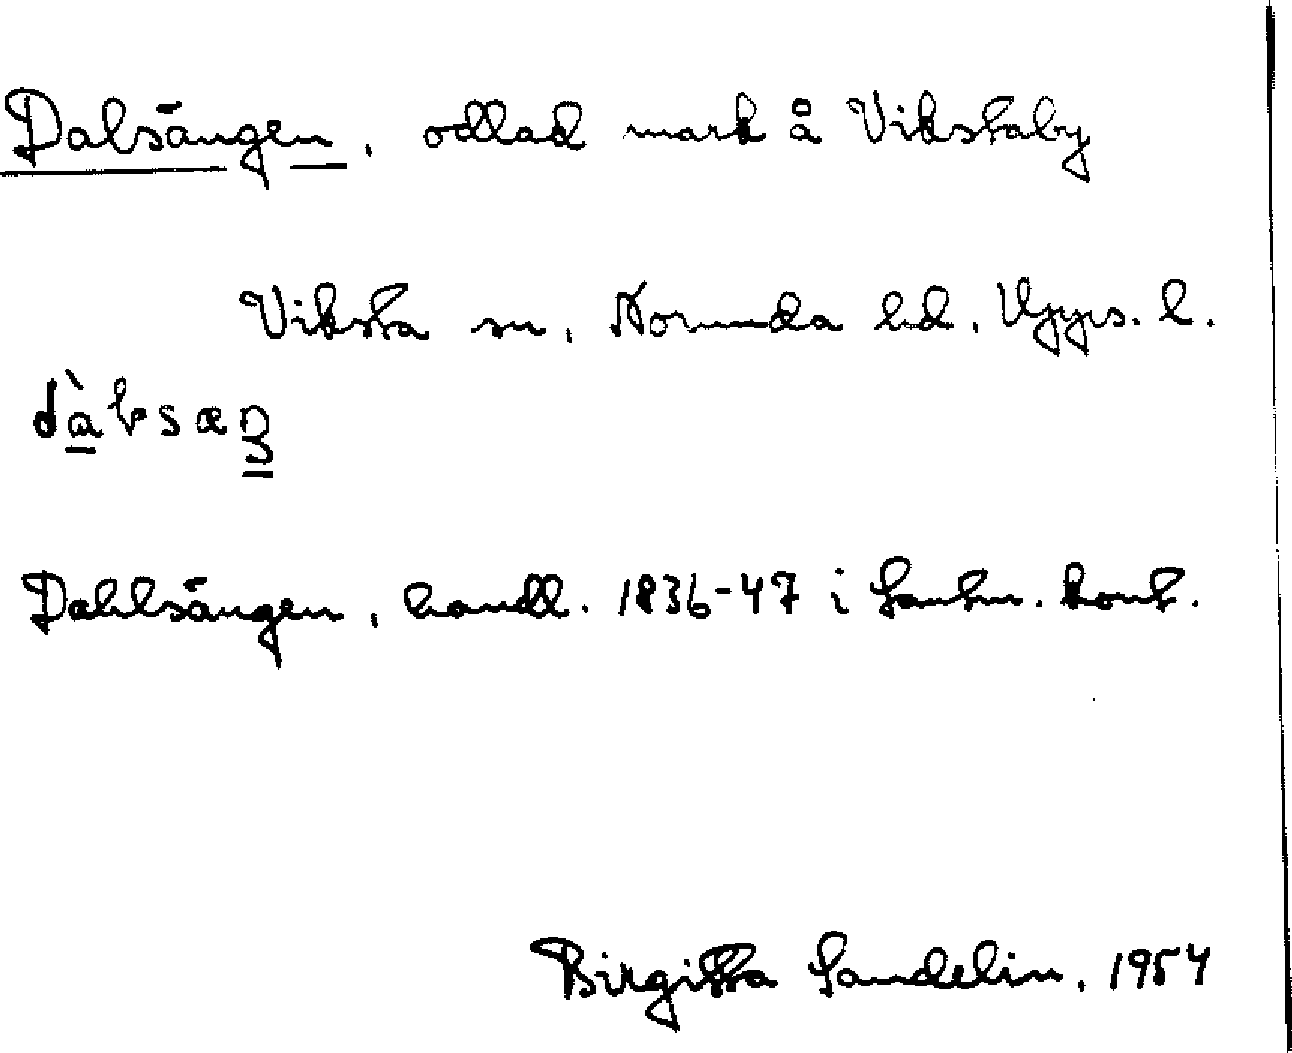 Dalsängen, odlad mark å Vikstaby
Viksta sn, Norunda hd. Upps. l.
dàlsæŋ
Dahlsängen, handl. 1836-47 i Lantm. kont.
Birgitta Sandelin, 1954